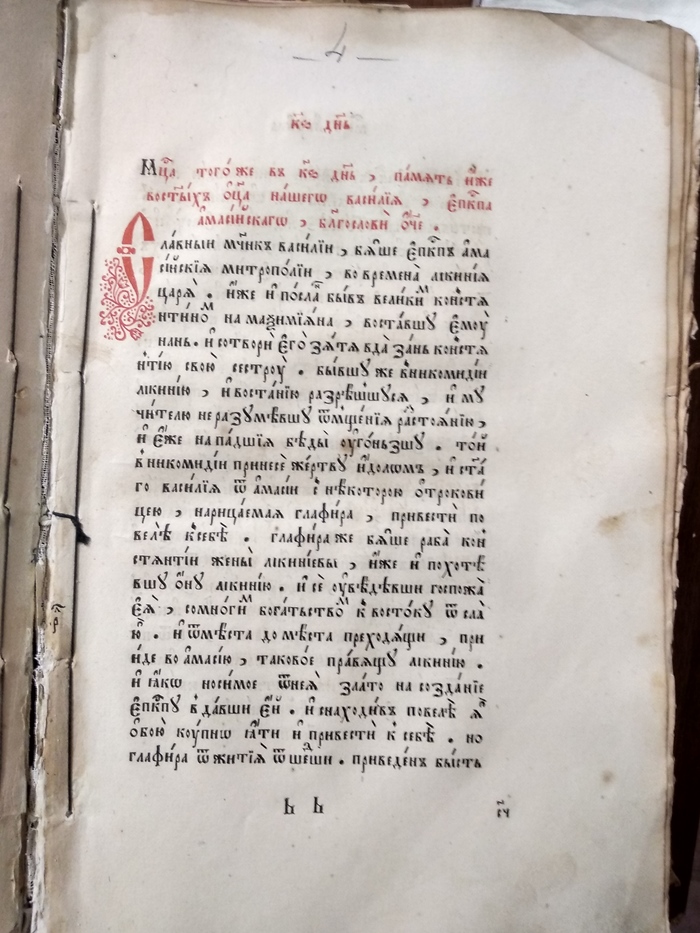 — 4 —
к҃ѕ дн҃ь
Мц҃а тогѡ́же въ к҃ѕ дн҃ь , па́мѧть и҆́же
во ст҃ы́хъ ѻ҆ц҃а̀ на́шегѡ васи́лїѧ , є҆п҃кпа
а҆масі́йскагѡ , бл҃гословѝ ѻ҆́ч҃е .
Сла́вныи мч҃нкъ васи́лїи , бѧ́ше є҆п҃кпъ а҆ма
сі́йскїѧ митропо́лїи , во времена̀ лїки́нїѧ
царѧ̀ . и҆́же и҆ по́сланъ бы́въ вели́кимъ ко́нстѧ
нтиномъ на маѯимїѧ́на , воста́вшꙋ є҆моу̀
на́нь . и҆ сотворѝ є҆го̀ зѧ́тѧ вда̀ за́нь ко́нстѧ
нті́ю свою̀ сестроу̀ . бы́вшꙋ же в̾никомиді́и
лики́нїю , и҆ воста́нїю разрѣ́шшꙋсѧ , и҆ мꙋ
чи́телю не разꙋмѣ́вшꙋ ѿмще́нїѧ растоѧ́нїю ,
и҆ є҆́же напа́дшїѧ бѣды̀ оу҆го́ньзшꙋ . то́й
в̾никомиді́и принесѐ же́ртвꙋ и҆́доломъ , и҆ ст҃а́
го васи́лїѧ ѿ а҆масі́и с̾ нѣ́которою ѻ҆трокови́
цею , нарица́емаѧ глафи́ра , привестѝ по
велѣ̀ к̾себѣ̀ . глафи́ра же бѧ́ше раба̀ кон̾
стѧнті́и жены̀ лики́нїевы , и҆́же и҆ похотѣ́
вшꙋ ѻ҆́нꙋ лики́нїю . и҆ сѐ оу҆вѣ́дѣвши госпожа̀
є҆ѧ̀ , со мно́гимъ бога́тьствомъ к̾восто́кꙋ ѿсла̀
ю҆̀ . и҆ ѿ мѣ́ста до мѣ́ста преходѧ́щи , прїи
и҆́де во а҆масі́ю , таково́е пра́вѧщꙋ лики́нїю .
и҆ ꙗ҆́кѡ носи́мое ѿнеѧ̀ зла́то на созда́нїе
є҆п҃кпꙋ в̾да́вши є҆́й . и҆ снаходи́въ повелѣ̀ ѧ҆̀
ѻ҆бою̀ коу́пнѡ ꙗ҆́ти и҆ привестѝ к̾ себѣ̀ . но
глафи́ра ѿ житїѧ̀ ѿше́дши . приведе́нъ бы́сть
Ь Ь